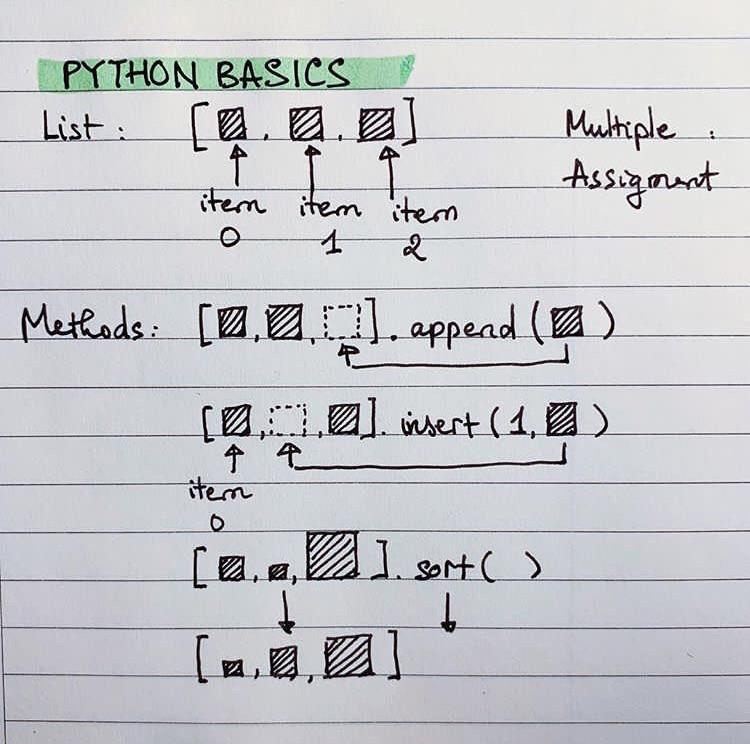 PYTHON BASICS
List : [ , , ]
item item item
0 1 2
Multiple :
Assigment
Methods: [ , , ] . append ( )
[ , , ] . insert ( 1, )
item
0
[ , , ] . sort ( )
[ , , ]